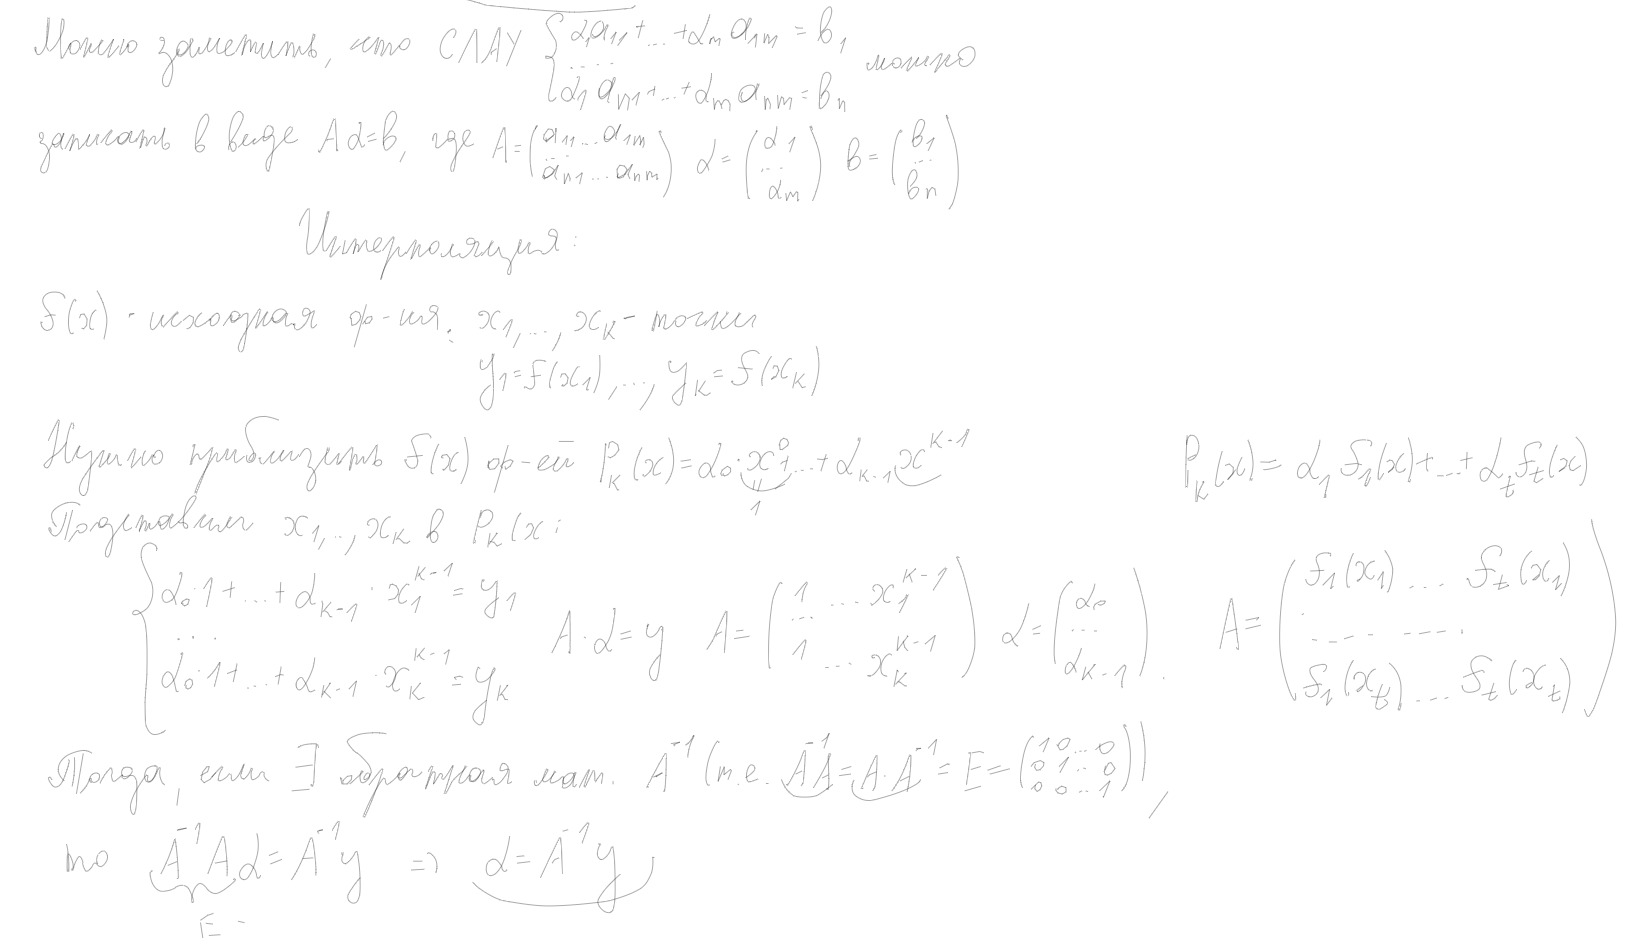 Можно заметить, что СЛАУ { α₁a₁₁+...+αₘa₁ₘ = b₁
.... можно
α₁aₙ₁+...+αₘaₙₘ = bₙ
записать в виде Aα=b, где A = (a₁₁...a₁ₘ ... aₙ₁...aₙₘ) α = (α₁ ... αₘ) b = (b₁ ... bₙ)
Интерполяция:
f(x) - исходная ф-ия. x₁,...,xₖ - точки
y₁=f(x₁),..., yₖ=f(xₖ)
Нужно приблизить f(x) ф-ей Pₖ(x)=α₀·x⁰+...+αₖ₋₁x^(k-1)
1
Подставим x₁,..,xₖ в Pₖ(x:
{ α₀·1+...+αₖ₋₁·x₁^(k-1) = y₁
...
α₀·1+...+αₖ₋₁·xₖ^(k-1) = yₖ
A·α=y A = (1 ... x₁^(k-1) ... 1 ... xₖ^(k-1)) α = (α₀ ... αₖ₋₁).
Pₖ(x) = α₁f₁(x)+...+αₜfₜ(x)
A = (f₁(x₁) ... fₜ(x₁) ... f₁(xₜ) ... fₜ(xₜ))
Тогда, если ∃ обратная мат. A⁻¹ (т.е. A⁻¹A=A·A⁻¹=E=(1 0...0 0 1..0 0 0..1)),
то A⁻¹Aα=A⁻¹y => α=A⁻¹y
E